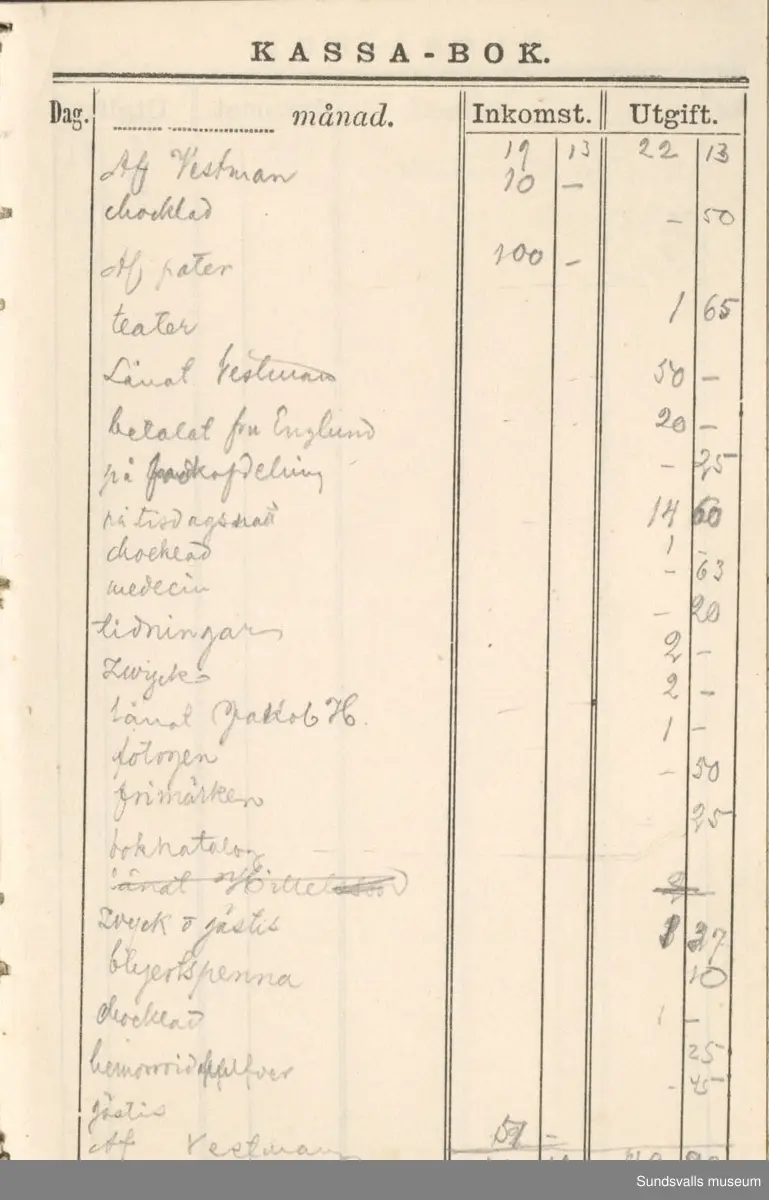 KASSA-BOK.
Dag. månad. Inkomst. Utgift.
19 13 22 13
Af Vestman 10 –
chocklad – 50
Af pater 100 –
teater 1 65
Lånat Vestman 50 –
betalat fru Englund 20 –
på – 25
på tisdagsnatt 14 60
chocklad 1 –
medecin – 63
tidningar – 20
Zwyck 2 –
lånat Jakob H. 2 –
fotogen 1 –
frimärken – 50
bokkatalog 25
lånat 2 –
Zwyck o gästis 1 37
blyertspenna 10
chocklad 1 –
hemorroidpulfver 25
gästis – 45
Af Vestman 51 –
Sundsvalls museum